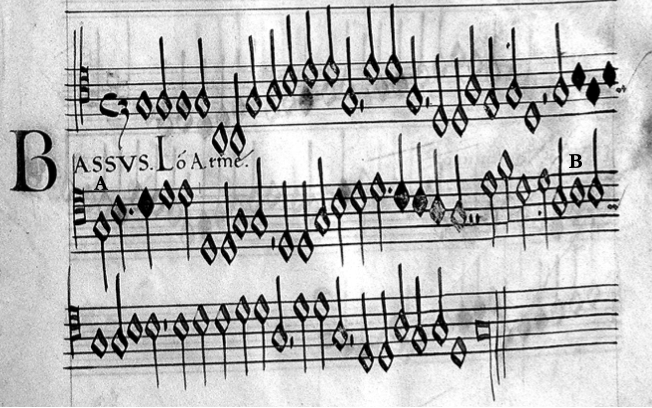 BASSVS. Ló Arme.
A B